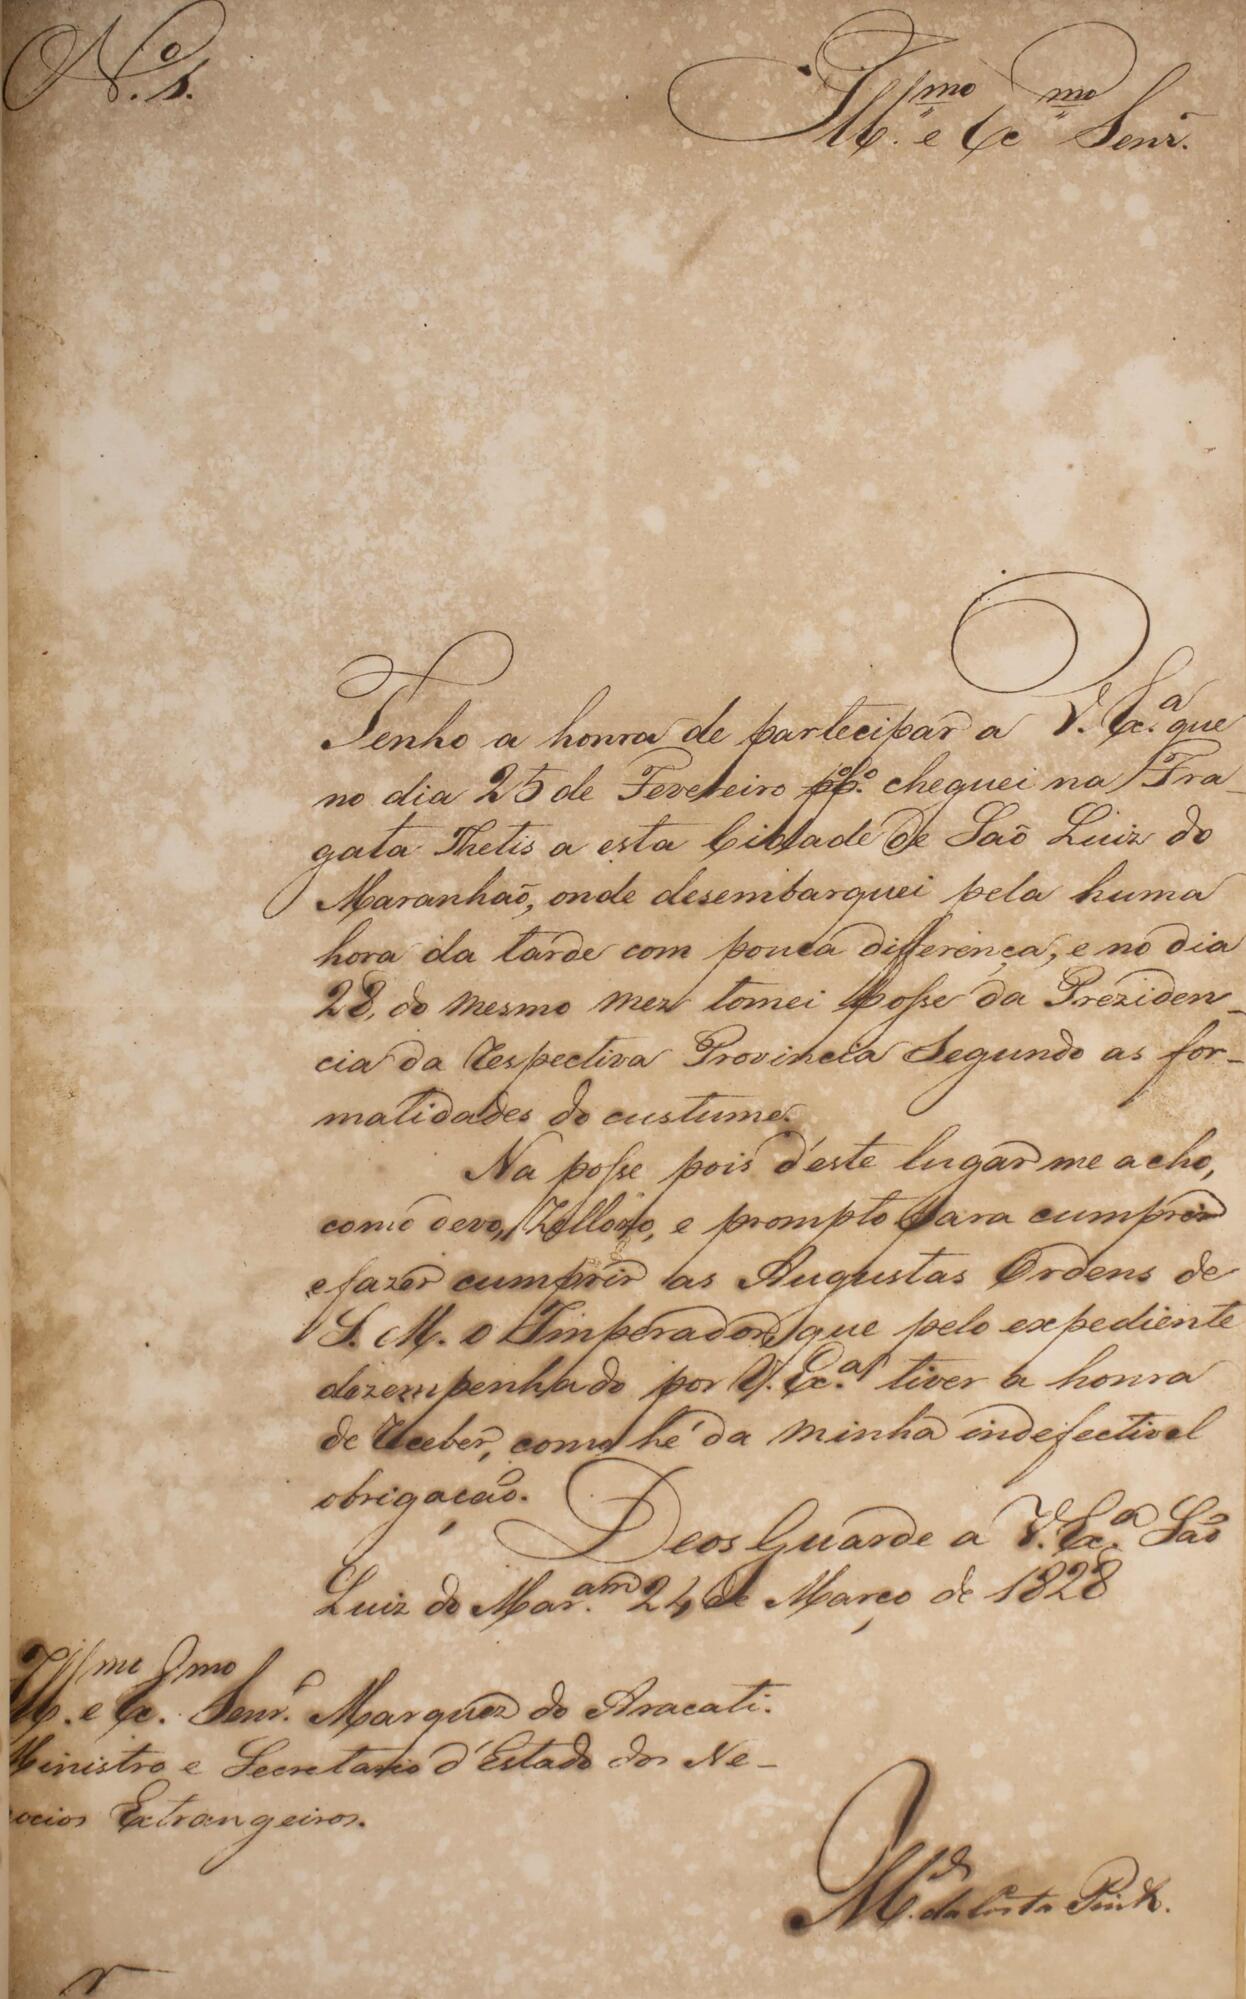 N.º 1.
Ill.mo e Ex.mo Senr.
Tenho a honra de partecipar a V. Ex.ª que
no dia 25 de Fevereiro pp.º cheguei na Fra-
gata Thetis a esta Cidade de Saõ Luiz do
Maranhaõ, onde desembarquei pela huma
hora da tarde com pouca differença, e no dia
28, do mesmo mez tomei posse da Preziden-
cia da respectiva Provincia segundo as for-
malidades do custume.
Na posse pois d'este lugar me acho,
como devo, Zellozo, e prompto para cumprir
e fazer cumprir as Augustas Ordens de
S. M. o Imperador, que pelo expediente
dezempenhado por V. Ex.ª tiver a honra
de receber, como hé da minha indefectivel
obrigaçaõ.
Deos Guarde a V. Ex.ª Saõ
Luiz do Mar.am 24 de Março de 1828
Ill.mo e Ex.mo Senr. Marquez do Aracati.
Ministro e Secretario d'Estado dos Ne-
gocios Extrangeiros.
M.el da Costa Pinto.